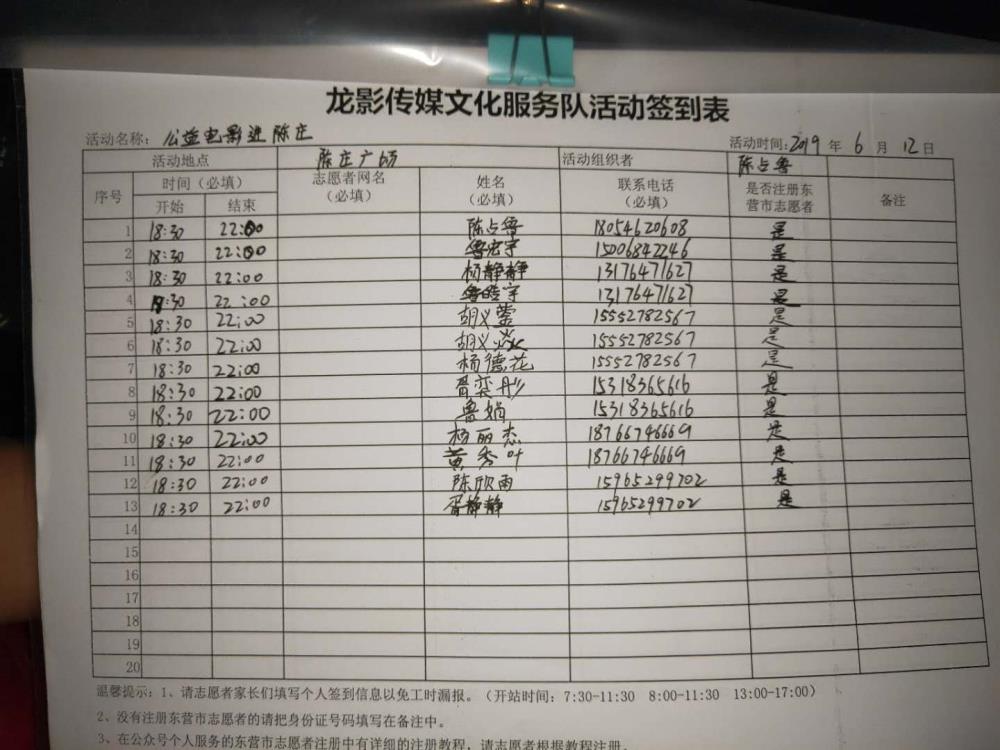 龙影传媒文化服务队活动签到表
活动名称: 公益电影进陈庄 活动时间:2019 年 6 月 12 日
活动地点 陈庄广场 活动组织者 陈占鲁
序号 时间（必填） 志愿者网名（必填） 姓名（必填） 联系电话（必填） 是否注册东营市志愿者 备注
开始 结束
1 18:30 22:00 陈占鲁 18054620608 是
2 18:30 22:00 鲁宏宇 15006842246 是
3 18:30 22:00 杨静静 13176471627 是
4 18:30 22:00 鲁皓宇 13176471627 是
5 18:30 22:00 胡义 15552782567 是
6 18:30 22:00 胡义焱 15552782567 是
7 18:30 22:00 杨德花 15552782567 是
8 18:30 22:00 胥奕彤 15318365616 是
9 18:30 22:00 鲁娟 15318365616 是
10 18:30 22:00 杨丽杰 18766746669 是
11 18:30 22:00 黄秀叶 18766746669 是
12 18:30 22:00 陈欣雨 15965299702 是
13 18:30 22:00 胥静静 15965299702 是
14
15
16
17
18
19
20
温馨提示: 1、请志愿者家长们填写个人签到信息以免工时漏报。（开站时间: 7:30-11:30 8:00-11:30 13:00-17:00）
2、没有注册东营市志愿者的请把身份证号码填写在备注中。
3、在公众号个人服务的东营市志愿者注册中有详细的注册教程，请志愿者根据教程注册。